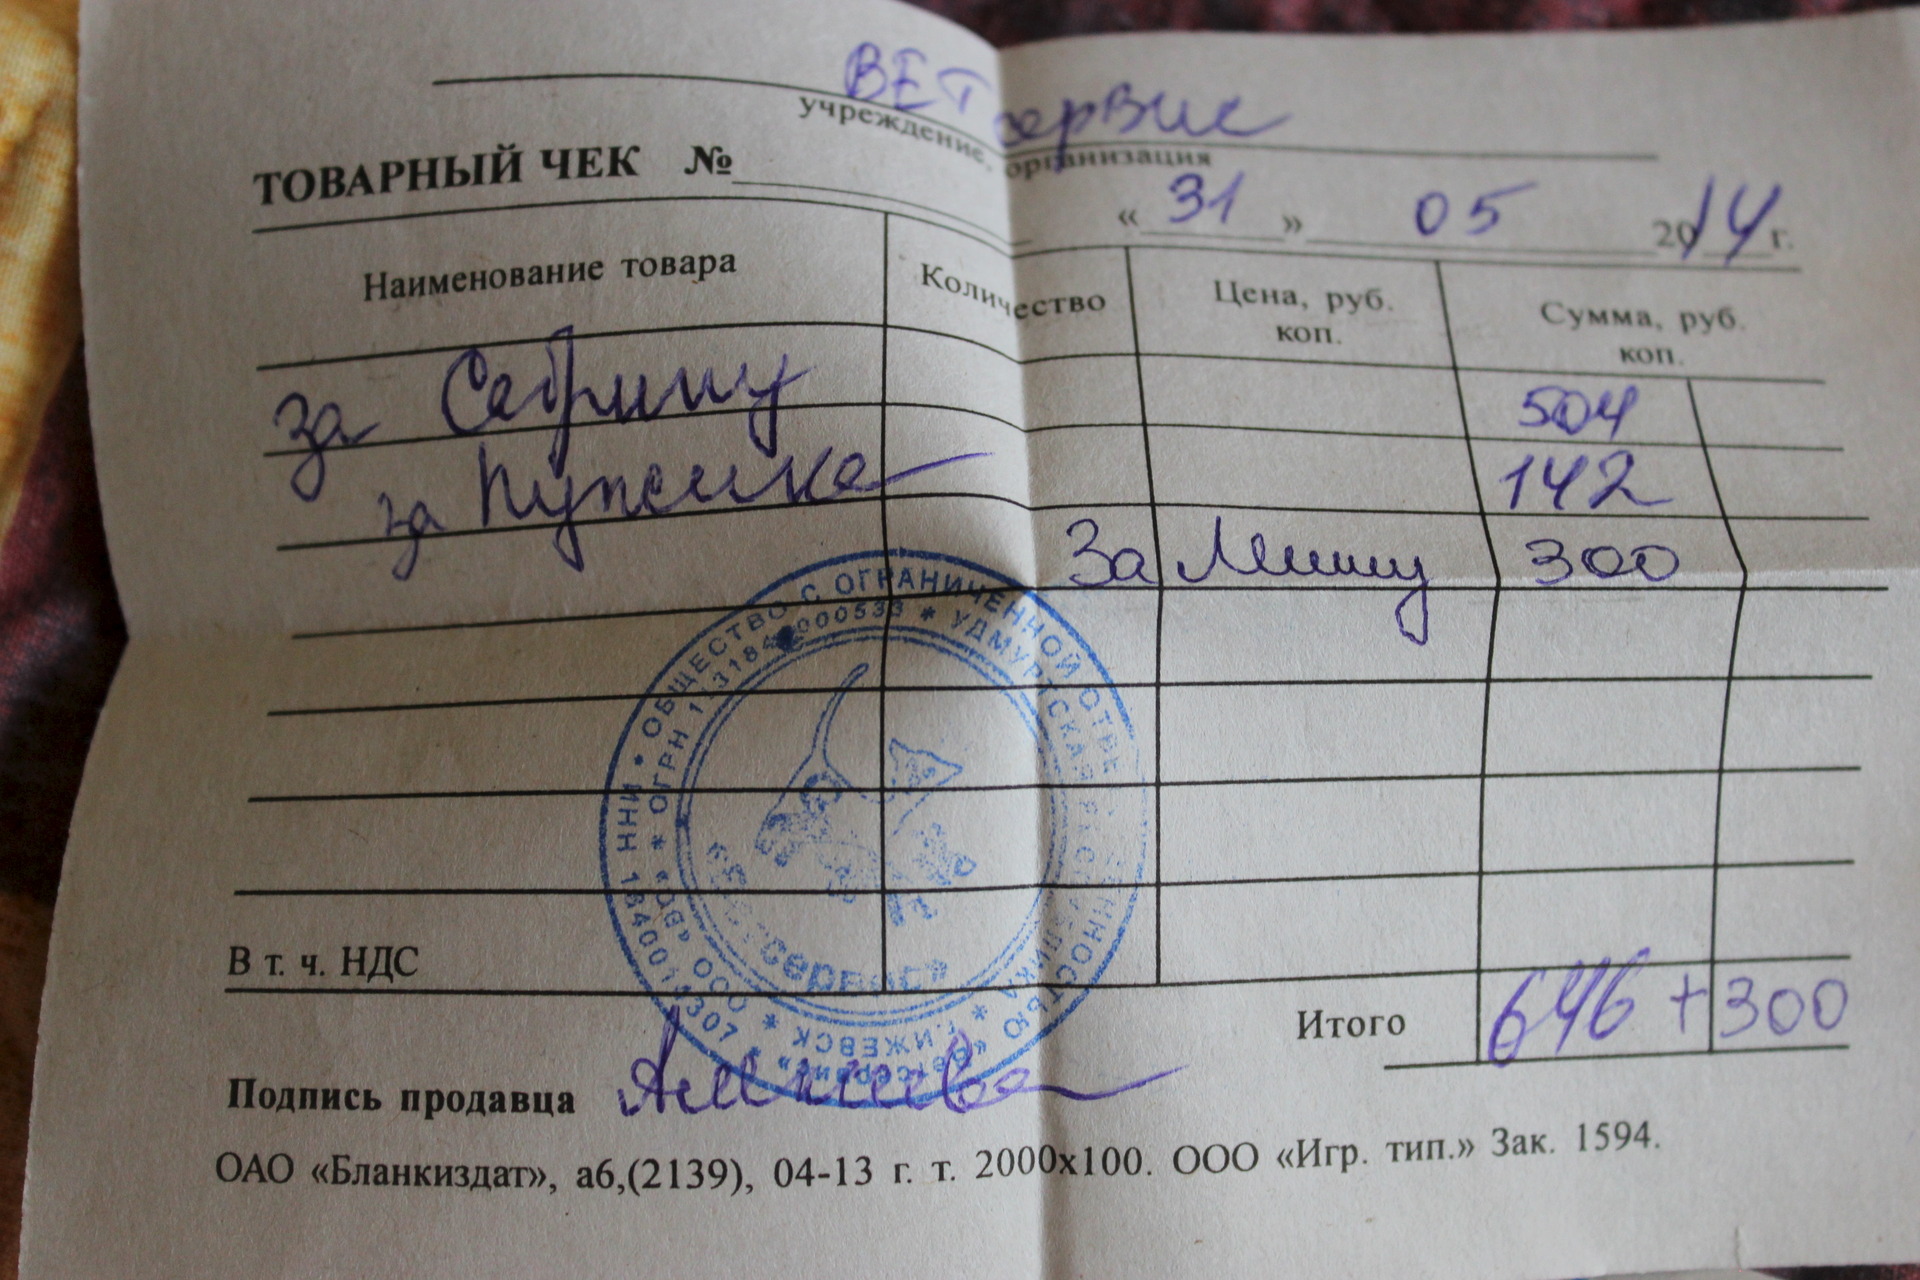 ВЕТ сервис
учреждение, организация
ТОВАРНЫЙ ЧЕК №
« 31 » 05 2014 г.
Наименование товара Количество Цена, руб. коп. Сумма, руб. коп.
за Сабрину 504
за Пужика 142
За Мишу 300
ОБЩЕСТВО С ОГРАНИЧЕННОЙ ОТВЕТСТВЕННОСТЬЮ
УДМУРТСКАЯ РЕСПУБЛИКА * Г.ИЖЕВСК * ООО «ВС» * ОГРН
ИНН
«Ветсервис»
В т. ч. НДС
Итого 646 + 300
Подпись продавца
ОАО «Бланкиздат», а6,(2139), 04-13 г. т. 2000х100. ООО «Игр. тип.» Зак. 1594.